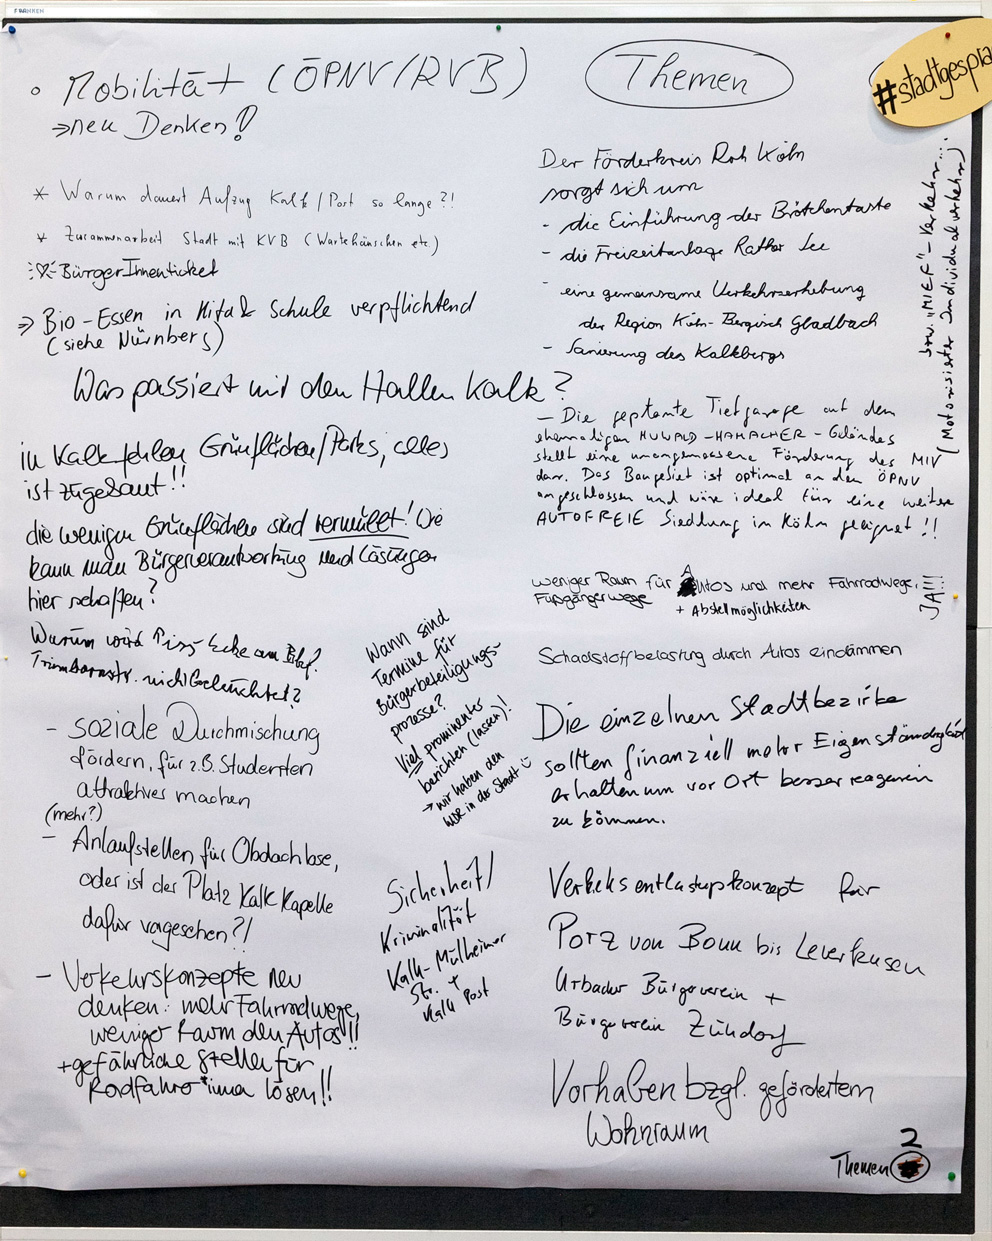 FRANKEN
• Mobilität (ÖPNV/RVB)
⇒ neu Denken!
Themen
#stadtgesprä
* Warum dauert Aufzug Kalk/Post so lange?!
* Zusammenarbeit Stadt mit KVB (Wartehäuschen etc.)
BürgerInnenticket
⇒ Bio-Essen in Kita & Schule verpflichtend
(siehe Nürnberg)
Was passiert mit den Hallen Kalk?
in Kalk fehlen Grünflächen/Parks, alles
ist zugebaut!!
die wenigen Grünflächen sind vermüllt! Wie
kann man Bürgerverantwortung und Lösungen
hier schaffen?
Warum wird Piss-Ecke am Bhf.
Trimbornstr. nicht beleuchtet?
- soziale Durchmischung
fördern, für z.B. Studenten
attraktives machen
(mehr?)
- Anlaufstellen für Obdachlose,
oder ist der Platz Kalk Kapelle
dafür vorgesehen?!
- Verkehrskonzepte neu
denken: mehr Fahrradwege,
weniger Raum den Autos!!
+ gefährliche Stellen für
Radfahrer*innen lösen!!
Wann sind
Termine für
Bürgerbeteiligungs-
prozesse?
Viel prominenter
berichten (lassen)!
→ wir haben den
WDR in der Stadt
Sicherheit/
Kriminalität
Kalk-Mülheimer
Str. +
Kalk Post
Der Förderkreis Rrh Köln
sorgt sich um
- die Einführung der Brötchentaste
- die Freizeitanlage Rather See
- eine gemeinsame Verkehrserhebung
der Region Köln-Bergisch Gladbach
- Sanierung des Kalkbergs
- Die geplante Tiefgarage auf dem
ehemaligen HUWALD-HAMACHER-Geländes
stellt eine unangemessene Förderung des MIV
dar. Das Baugebiet ist optimal an den ÖPNV
angeschlossen und wäre ideal für eine weitere
AUTOFREIE Siedlung in Köln geeignet!!
bzw. "MIEF"-Verkehr...
(Motorisierter Individualverkehr)
weniger Raum für Autos und mehr Fahrradwege,
Fußgängerwege + Abstellmöglichkeiten
JA!!!
Schadstoffbelastung durch Autos eindämmen
Die einzelnen Stadtbezirke
sollten finanziell mehr Eigenständigkeit
erhalten um vor Ort besser reagieren
zu können.
Verkehsentlastupkonzept für
Porz von Bonn bis Leverkusen
Urbacher Bürgerverein +
Bürgerverein Zündorf
Vorhaben bzgl. gefördertem
Wohnraum
Themen 2